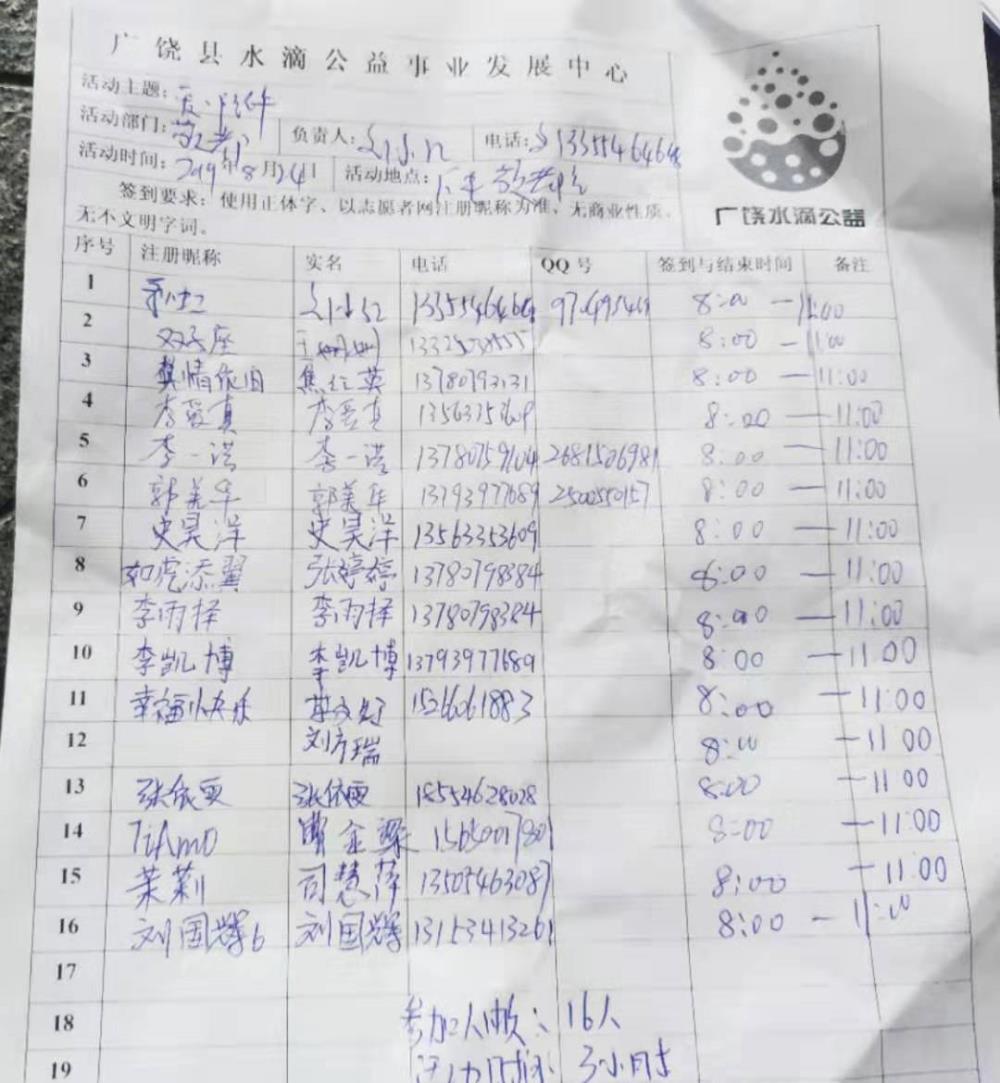 广饶县水滴公益事业发展中心
活动主题：
活动部门： 负责人：刘小红 电话：13355464646
活动时间：2019年8月24日 活动地点：敬老院
签到要求：使用正体字、以志愿者网注册昵称为准、无商业性质、
无不文明字词。
广饶水滴公益
序号 注册昵称 实名 电话 QQ号 签到与结束时间 备注
1 刘小红 8:00 — 11:00
2 双子座 8:00 — 11:00
3 真情依旧 焦红英 8:00 — 11:00
4 李爱真 李爱真 8:00 — 11:00
5 李一诺 李一诺 13780759104 2681506981 8:00 — 11:00
6 郭美华 郭美华 13793977689 2500550157 8:00 — 11:00
7 史昊洋 史昊洋 13563353609 8:00 — 11:00
8 如虎添翼 张婷婷 13780798384 8:00 — 11:00
9 李雨择 李雨择 13780798384 8:00 — 11:00
10 李凯博 李凯博 13793977689 8:00 — 11:00
11 幸福快乐 15266061883 8:00 — 11:00
12 刘方瑞 8:00 — 11:00
13 张依雯 张依雯 18554628028 8:00 — 11:00
14 TiAmo 8:00 — 11:00
15 茉莉 司慧萍 13505463087 8:00 — 11:00
16 刘国辉6 刘国辉 13153413261 8:00 — 11:00
17
18 参加人数：16人
19 活动时间：3小时